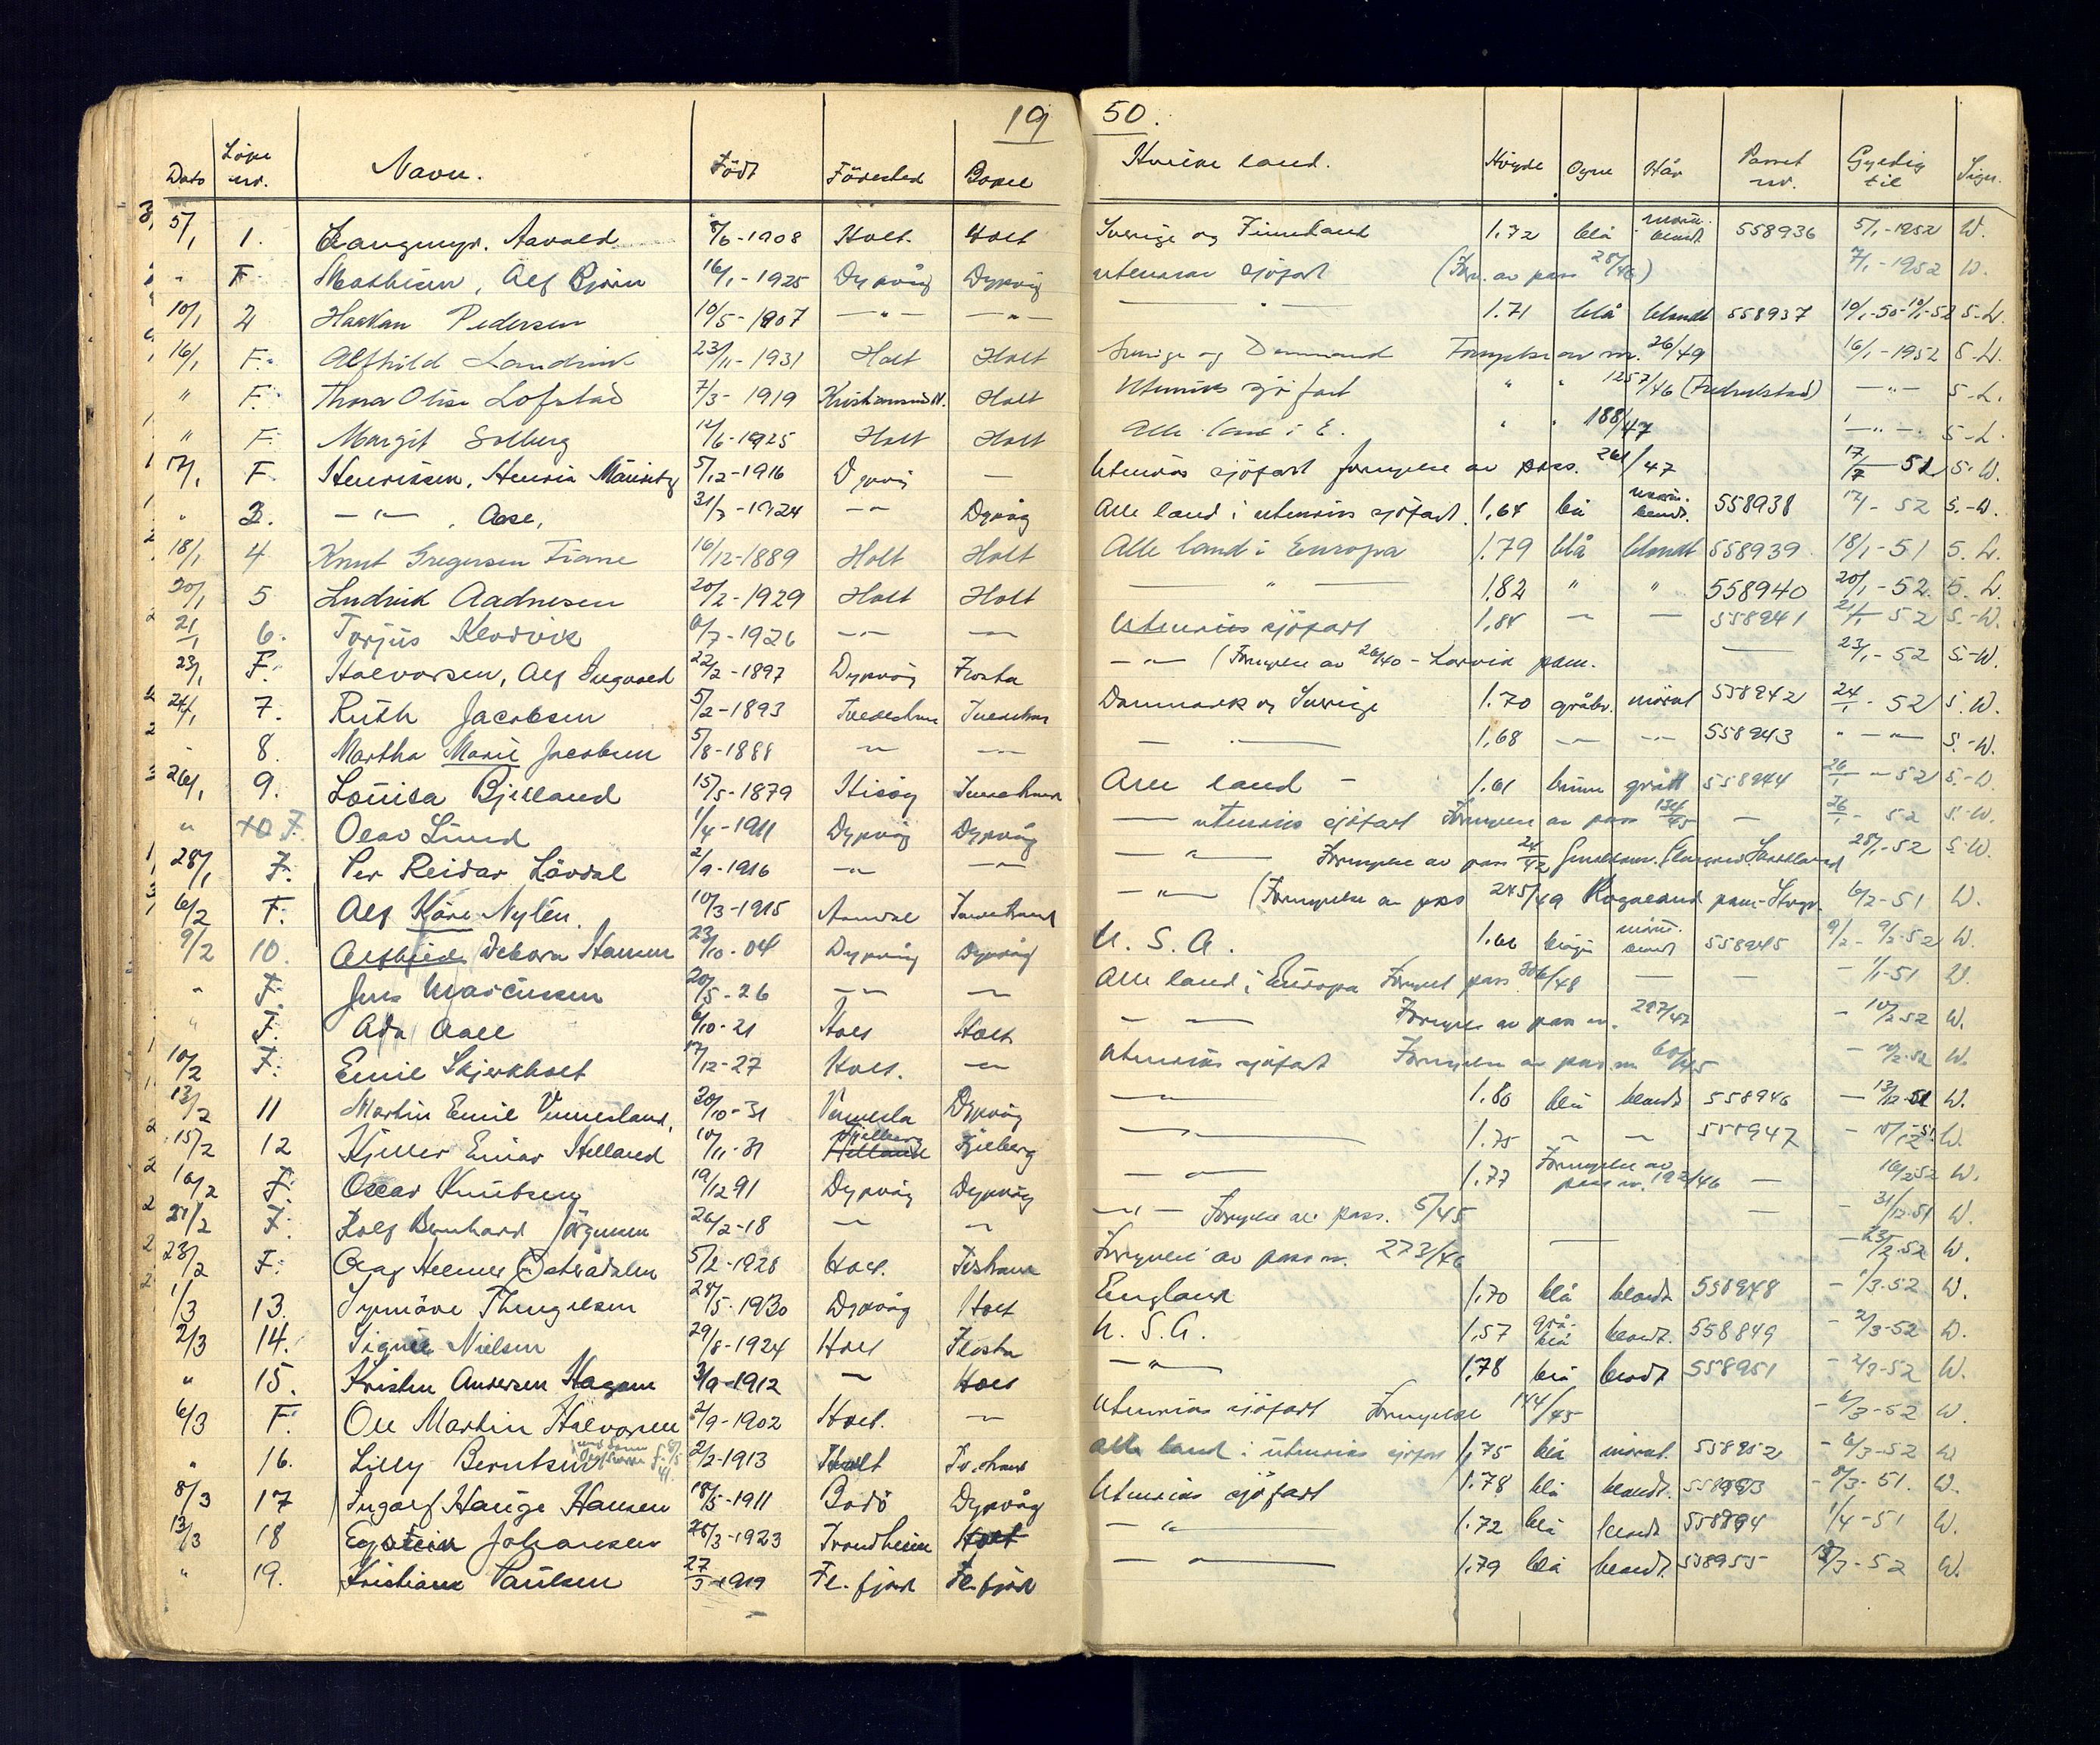 19 50.
Dato Löpe nr. Navn. Födt Födested Bopel Hvilke land. Höyde Öyne Hår Passet nr. Gyldig til Sign.
5/1 1. Langmyr, Aavald 8/6-1908 Holt. Holt Sverige og Finnland 1.72 blå blondt 558936 5/1-1952 W.
" F. Mathisen, Alf Björn 16/1-1925 Dypvåg Dypvåg utenriks sjöfart (Forn. av pass 28/46) 7/1-1952 W.
10/1 2 Haakon Pedersen 10/5-1907 —"— —"— — " — 1.71 blå blondt 558937 10/1-50-10/1-52 S.-W.
16/1 F. Alfhild Landvik 23/11-1931 Holt Holt Sverige og Danmark Fornyelse av nr. 26/49 16/1-1952 S-W.
" F. Thora Otise Lofstad 7/3-1919 Kristiansund N. Holt Utenriks sjöfart " " 1257/46 (Fredrikstad) —"— S-L.
" F. Margit Solberg 12/6-1925 Holt Holt Alle land i E. " " 188/47 —"— S-L.
17/1 F. Henriksen, Henrik Mauritz 5/12-1916 — Utenriks sjöfart fornyelse av pass. 261/47 17/7 51 S.W.
" 3. —"— , Aase, 31/3-1924 —"— Dypvåg Alle land i utenriks sjöfart. 1,64 blå blondt. 558938 17/1-52 S.-W.
18/1 4 Knut Gregersen Fiane 16/12-1889 Holt Holt Alle land i Europa 1.79 blå blondt 558939 18/1-51 S.W.
20/1 5 Ludvik Aadnesen 20/2-1929 Holt Holt — " — 1.82 " " 558940 20/1-52. S.W.
21/1 6. Torjus 6/7-1926 —"— —"— Utenriks sjöfart 1,84 — — 558941 21/1 52 S.-W.
23/1 F. Halvorsen, Alf Ingvald 22/2-1897 Dypvåg Flosta —"— (Fornyelse av 26/40 - Larvik pass. — 23/1-52 S.-W.
24/1 7. Ruth Jacobsen 5/2-1893 Tvedestrand Tvedestrand Danmark og Sverige 1.70 gråbr. mörkt 558942 24/1-52 S.W.
" 8. Martha Marie Jacobsen 5/8-1888 —"— —"— — — 1,68 —"— —"— 558943 " —"— S.-W.
26/1 9. Louisa Bjelland 15/5-1879 Hisöy Tvedestrand Alle land — 1.61 brune grått 558944 26/1-52 S.-W.
" 10 F. Olav Lund 1/4-1911 Dypvåg Dypvåg — utenriks sjöfart Fornyelse av pass 134/45 — 26/1-52 S.-W.
28/1 F. Per Reidar Lövdal 2/9-1916 —"— —"— — " — Fornyelse av pass 24/42 28/1-52 S.W.
6/2 F. Alf Kåre Nylén. 10/3-1915 Arendal Tvedestrand —"— (Fornyelse av pass 245/49 Rogaland pass-Stvgr. 6/2-51 W.
9/2 10. Alfhild Debora Hansen 23/10-04 Dypvåg Dypvåg U.S.A. 1.61 558945 9/2-9/2-52 W.
" F. Jens Marcussen 20/5-26 —"— —"— Alle land i Europa Fornyet pass 306/48 — — -1/1-51 W.
" F. Ada Aall 6/10-21 Holt Holt — — Fornyelse av pass nr. 297/47 -10/2-52 W.
10/2 F. Emil Skjerkholt 17/12-27 Holt. —"— utenriks sjöfart Fornyelse av pass nr. 60/45 -10/2-52 W.
13/2 11 Martin Emil Vennesland, 30/10-31 Vennesla Dypvåg —"— 1.80 blå blondt 558946 -13/12-51 W.
15/2 12 Kjeller Einar Helland 10/11-31 Gjelberg Helland Gjelberg —"— 1.75 — — 558947 -15/12-51 W.
16/2 F. Oscar Knutsen 19/12 91 Dypvåg Dypvåg —"— 1.77 Fornyelse av pass nr. 192/46 — 16/2-52 W.
21/2 F. Rolf Bernhard Jörgensen 26/2-18 —"— —"— —"— Fornyelse av pass. 5/45 — -31/12-51 W.
23/2 F. Olaf Helmer Österådalen 5/2-1928 Holt. Fornyelse av pass nr. 273/46 — -23/2-52 W.
1/3 13. Synnöve Thengelsen 28/5-1930 Dypvåg Holt England 1.70 blå blondt 558948 -1/3-52 W.
2/3 14. Signe Nielsen 29/8-1924 Holt Flosta U.S.A. 1,57 grå-blå blondt. 558849 -2/3-52 W.
" 15. Kristen Andersen Hagane 3/9-1912 —"— Holt —"— 1,78 blå blondt 558951 -2/3-52 W.
6/3 F. Ole Martin Halvorsen 2/9-1902 Holt. —"— Utenriks sjöfart Fornyelse 144/45 -6/3-52 W.
" 16. Lilly Berntsen 2/2-1913 Holt Tv.strand alle land i utenriks sjöfart 1,75 blå mörkt. 558952 -6/3-52 W
8/3 17 Ingolf Hauge Hansen 18/5-1911 Bodö Dypvåg Utenriks sjöfart 1.78 blå blondt. 558953 -8/3-51. W.
13/3 18 Eystein Johansen 26/3-1923 Trondheim Holt — " — 1.72 blå blondt. 558954 1/4-51 W.
" 19. Kristian Paulsen 27/5-1919 Fl. fjord Fl. fjord — " — 1.79 blå blondt. 558955 13/3-52 W.